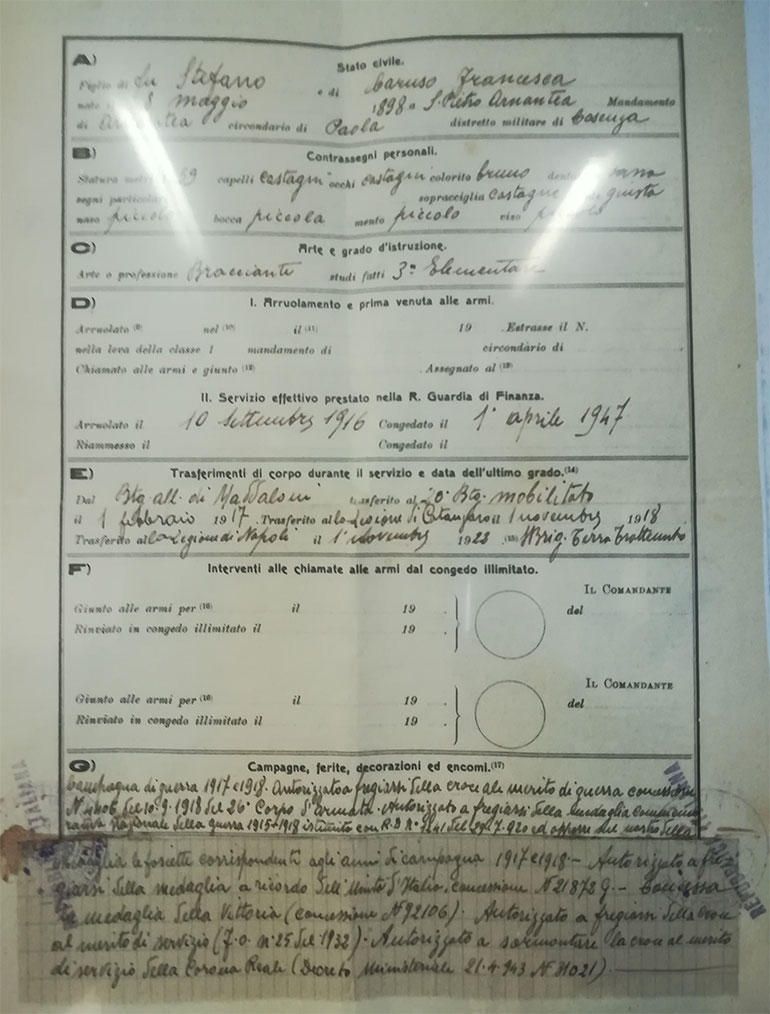 A) Stato civile.
Figlio di fu Stefano e di Caruso Francesca
nato maggio 1898 a S. Pietro Amantea Mandamento
di Amantea circondario di Paola distretto militare di Cosenza
B) Contrassegni personali.
Statura metri capelli castagni occhi castagni colorito bruno
segni particolari sopracciglia castagne giusta
naso piccolo bocca piccola mento piccolo viso
C) Arte e grado d'istruzione.
Arte o professione Bracciante studi fatti 3ª Elementare
D) I. Arruolamento e prima venuta alle armi.
Arruolato (9) nel (10) il (11) 19 . Estrasse il N.
nella leva della classe 1 mandamento di circondario di
Chiamato alle armi e giunto (12) . Assegnato al (13)
II. Servizio effettivo prestato nella R. Guardia di Finanza.
Arruolato il 10 Settembre 1916 Congedato il 1° aprile 1947
Riammesso il Congedato il
E) Trasferimenti di corpo durante il servizio e data dell'ultimo grado.(14)
Dal Btg all. di Maddaloni trasferito al 20° Btg. mobilitato
il 1 febbraio 1917. Trasferito alla Legione di Catanzaro il 1 novembre 1918
Trasferito alla Legione di Napoli il 1° novembre 1923 (15) Brig. Terra
F) Interventi alle chiamate alle armi dal congedo illimitato.
IL COMANDANTE
Giunto alle armi per (16) il 19 . del
Rinviato in congedo illimitato il 19 .
IL COMANDANTE
Giunto alle armi per (16) il 19 . del
Rinviato in congedo illimitato il 19 .
G) Campagne, ferite, decorazioni ed encomi.(17)
Campagna di guerra 1917 e 1918. Autorizzato a fregiarsi della croce al merito di guerra concessione
del 10.9.1918 del 26° Corpo d'Armata. Autorizzato a fregiarsi della medaglia commemo
rativa Nazionale della guerra 1915-1918 istituito con R.D. N° 1241 del 29.7.920 ed apporre sul nastro della
medaglia le fascette corrispondenti agli anni di campagna 1917 e 1918.- Autorizzato a fre
giarsi della medaglia a ricordo dell'Unità d'Italia, concessione N 218789.- Concessa
la medaglia della Vittoria (concessione N° 92106). Autorizzato a fregiarsi della croce
al merito di servizio (f.o. n° 25 del 1932). Autorizzato a sormontare la croce al merito
di servizio della Corona Reale (Decreto Ministeriale 21.4.943 N° 31021).